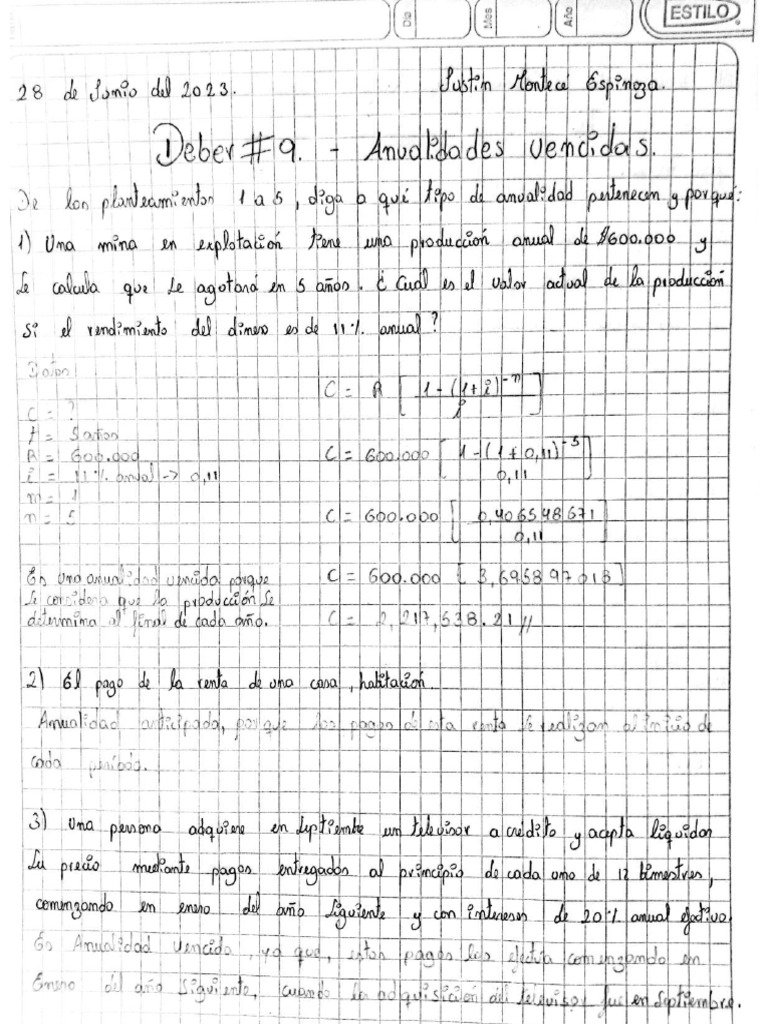 Dia
Mes
Año
ESTILO
28 de Junio del 2023.
Justin Montece Espinoza.
Deber #9. - Anualidades vencidas.
De los planteamientos 1 a 5, diga a qué tipo de anualidad pertenecen y porqué:
1) Una mina en explotación tiene una producción anual de $600.000 y
se calcula que se agotará en 5 años. ¿Cuál es el valor actual de la producción
si el rendimiento del dinero es de 11% anual?
Datos
C = ?
t = 5 años
R = 600.000
i = 11% anual -> 0,11
m = 1
n = 5
C = R [ 1 - (1+i)^-n / i ]
C = 600.000 [ 1 - (1+0,11)^-5 / 0,11 ]
C = 600.000 [ 0,406548671 / 0,11 ]
C = 600.000 [ 3,695897018 ]
C = 2,217,538.21 //
Es una anualidad vencida porque
se considera que la producción se
determina al final de cada año.
2) El pago de la renta de una casa, habitación.
Anualidad anticipada, porque los pagos de esta renta se realizan al inicio de
cada período.
3) Una persona adquiere en septiembre un televisor a crédito y acepta liquidar
su precio mediante pagos entregados al principio de cada uno de 12 bimestres,
comenzando en enero del año siguiente y con intereses de 20% anual efectivo
Es Anualidad Vencida, ya que, estos pagos los efectúa comenzando en
Enero del año siguiente, cuando la adquisición del televisor fue en Septiembre.